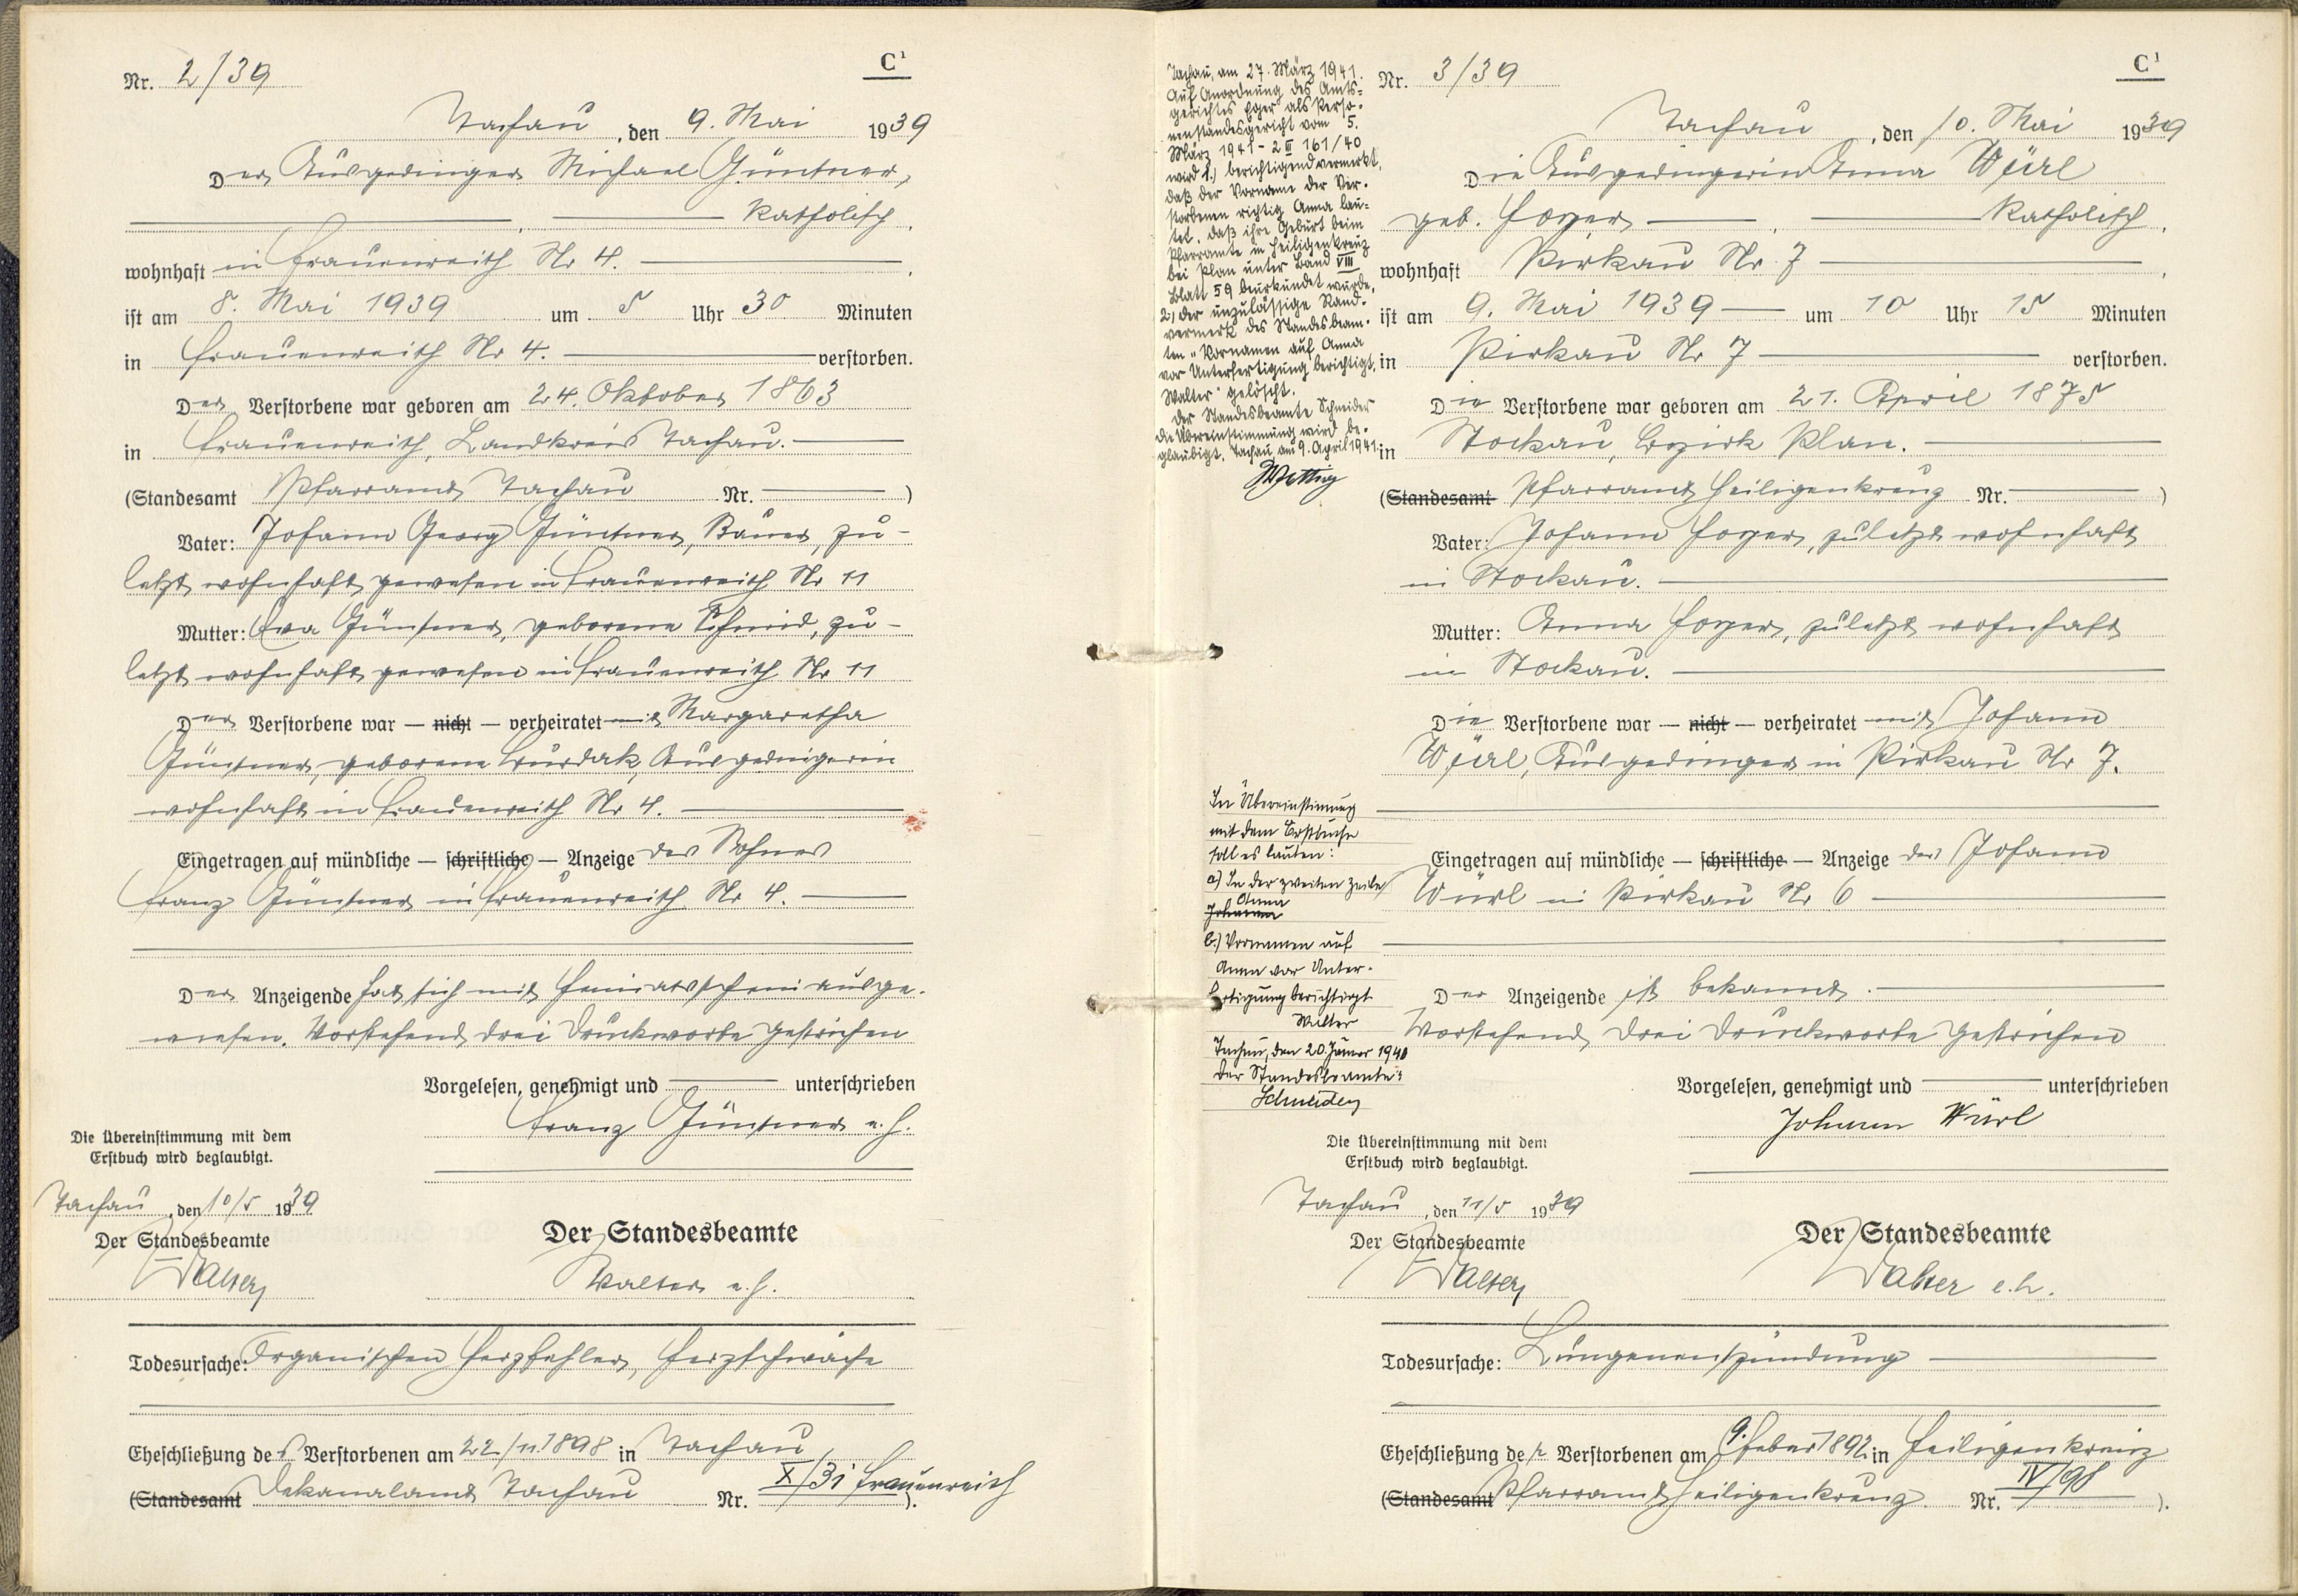 C¹
Nr. 2/39
Tachau, den 9. Mai 1939
Der Ausgedinger Michael Güntner,
katholisch,
wohnhaft in Frauenreith Nr 4.
ist am 8. Mai 1939 um 5 Uhr 30 Minuten
in Frauenreith Nr 4. verstorben.
Der Verstorbene war geboren am 24. Oktober 1863
in Frauenreith, Landkreis Tachau.
(Standesamt Pfarramt Tachau Nr. )
Vater: Johann Georg Güntner, Bauer, zu-
letzt wohnhaft gewesen in Frauenreith Nr 11
Mutter: Eva Güntner, geborene Schmid, zu-
letzt wohnhaft gewesen in Frauenreith Nr 11
Der Verstorbene war — nicht — verheiratet mit Margaretha
Güntner, geborene Ausgedingerin
wohnhaft in Frauenreith Nr 4.
Eingetragen auf mündliche — schriftliche — Anzeige des Sohnes
Franz Güntner in Frauenreith Nr 4.
Der Anzeigende hat sich mit Heimatschein ausge-
wiesen. Vorstehend drei Druckworte gestrichen
Vorgelesen, genehmigt und unterschrieben
Franz Güntner e.h.
Die Übereinstimmung mit dem
Erstbuch wird beglaubigt.
Tachau, den 10/5 1939
Der Standesbeamte
Walter
Der Standesbeamte
Walter e.h.
Todesursache: Organischen Herzfehler, Herzschwäche
Eheschließung des Verstorbenen am 22/11.1898 in Tachau
(Standesamt Dekanalamt Tachau Nr. X/31 Frauenreith ).
C¹
Nr. 3/39
Tachau, den 10. Mai 1939
Die Ausgedingerin Anna Würl
geb. Hoyer, katholisch,
wohnhaft Pirkau Nr. 7
ist am 9. Mai 1939 um 10 Uhr 15 Minuten
in Pirkau Nr 7 verstorben.
Die Verstorbene war geboren am 21. April 1875
in Stockau, Bezirk Plan.
(Standesamt Pfarramt Heiligenkreuz Nr. )
Vater: Johann Hoyer, zuletzt wohnhaft
in Stockau.
Mutter: Anna Hoyer, zuletzt wohnhaft
in Stockau.
Die Verstorbene war — nicht — verheiratet mit Johann
Würl, Ausgedinger in Pirkau Nr 7.
Eingetragen auf mündliche — schriftliche — Anzeige des Johann
Würl in Pirkau Nr 6
Der Anzeigende ist bekannt.
Vorstehend drei Druckworte gestrichen
Vorgelesen, genehmigt und unterschrieben
Johann Würl
Die Übereinstimmung mit dem
Erstbuch wird beglaubigt.
Tachau, den 11/5 1939
Der Standesbeamte
Walter
Der Standesbeamte
Walter e.h.
Todesursache: Lungenentzündung
Eheschließung der Verstorbenen am 9. Feber 1892 in Heiligenkreuz
(Standesamt Pfarramt Heiligenkreuz Nr. IV/98 ).
Tachau, am 27. März 1941.
Auf Anordnung des Amts-
gerichtes Eger als Perso-
nenstandesgericht vom 5.
März 1941 - 2 III 161/40
wird 1.) berichtigend vermerkt,
daß der Vorname der Ver-
storbenen richtig Anna lau-
tet, daß ihre Geburt beim
Pfarramte in Heiligenkreuz
bei Plan unter Band VIII
Blatt 59 beurkundet wurde,
2.) der unzulässige Rand-
vermerk des Standesbeam-
ten "Vornamen auf Anna
vor Unterfertigung berichtigt,
Walter" gelöscht.
Der Standesbeamte Schneider
Die Übereinstimmung wird be-
glaubigt. Tachau, am 9. April 1941.
Wettig
In Übereinstimmung
mit dem Erstbuche
soll es lauten:
a) In der zweiten Zeile
Anna
Johanna
b.) Vornamen auf
Anna vor Unter-
fertigung berichtigt
Walter
Tachau, den 20. Jänner 1940
Der Standesbeamte:
Schneider